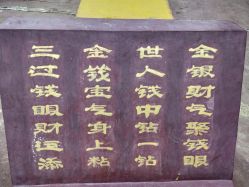 金银财气聚钱眼
世人钱中钻一钻
金钱宝气身上粘
三过钱眼财运添